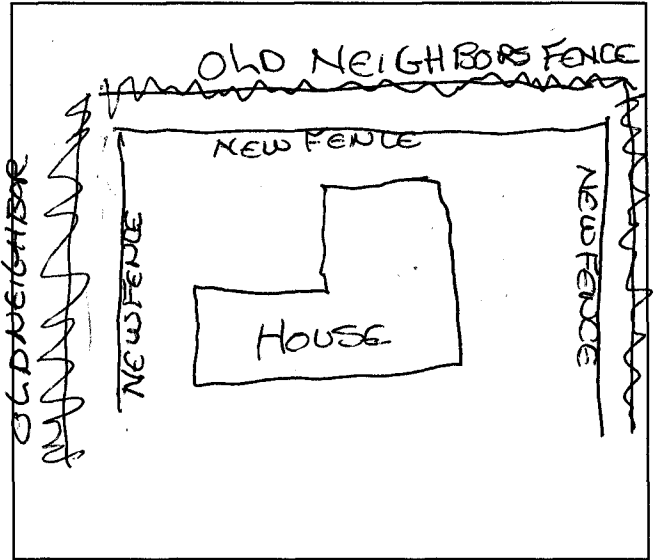 OLD NEIGHBORS FENCE
NEW FENCE
OLD NEIGHBOR
NEW FENCE
NEW FENCE
HOUSE